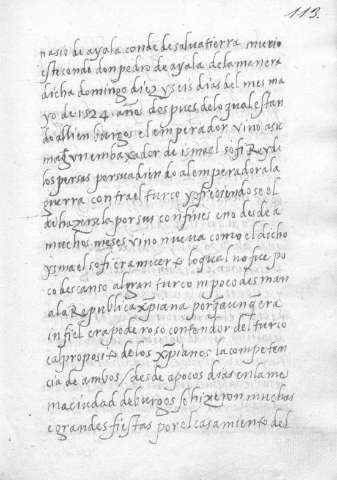 113.
nasio de ayala conde de salvatierra murio
este conde don pedro de ayala de la manera
dicha domingo diez y seis dias del mes ma
yo de 1524 años dos pues de lo qual estan
do alli en burgos el emperador vino a se
ma un embaxador de ismael sofi Rey de
los persas persuadiendo al emperador a la
guerra contra el turco y ofreciendose el
de hazerla por sus confines e no desde a
muchos meses vino nueva como el dicho
ysmael sofi era muerto lo qual no fue po
co descanso al gran turco ni poco desman
a la Republica xpiana porq̃ aunq̃ era
infiel era poderoso contendor del turco
e al proposito de los xp̃ianos la competen
cia de ambos / desde a pocos dias en la mes
ma ciudad de burgos se hizieron muchas
e grandes fiestas por el casamiento del